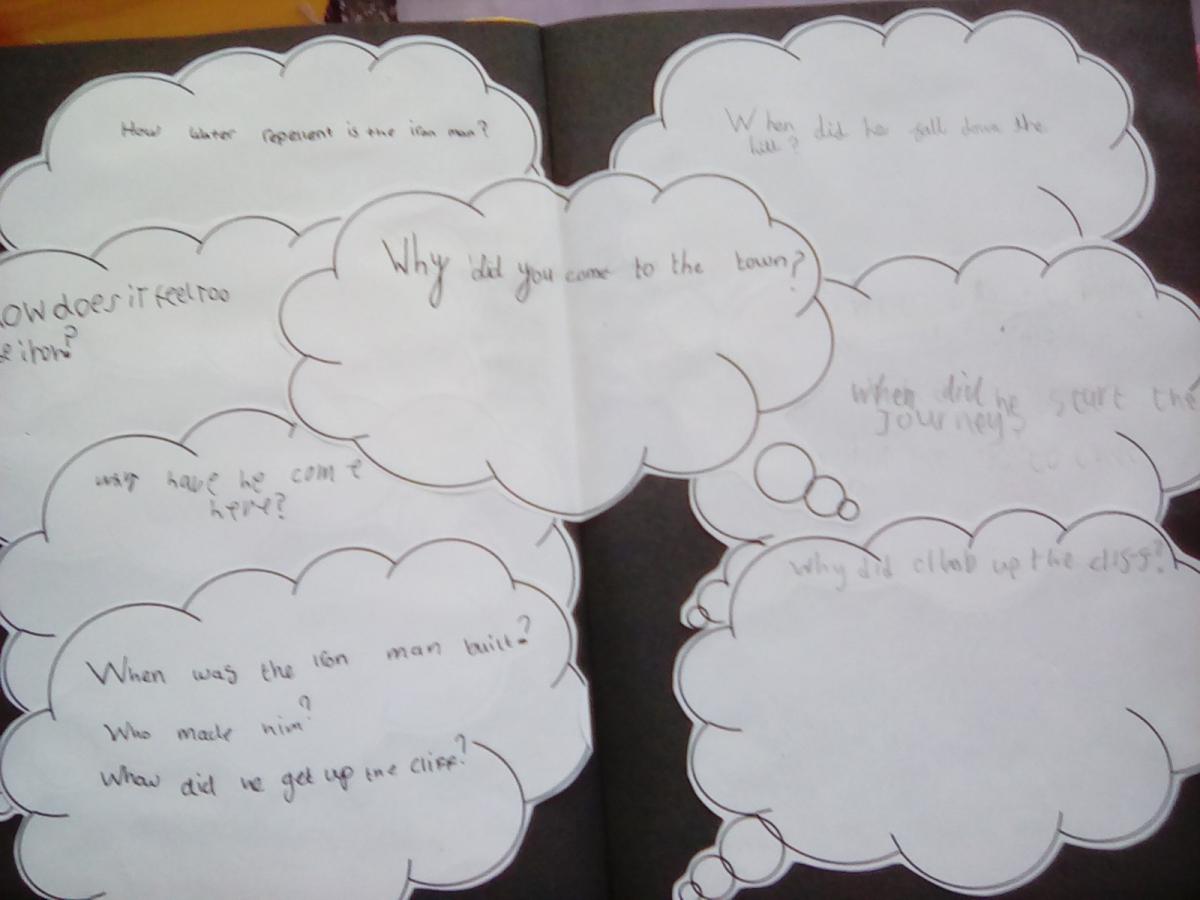 How water repenent is the iron man?
When did he fall down the
hill?
Why did you come to the town?
ow does it feel too
e iron?
When did he start the
Journey?
why have he come
here?
Why did climb up the cliff?
When was the iron man built?
Who made him?
Whow did he get up the cliff?